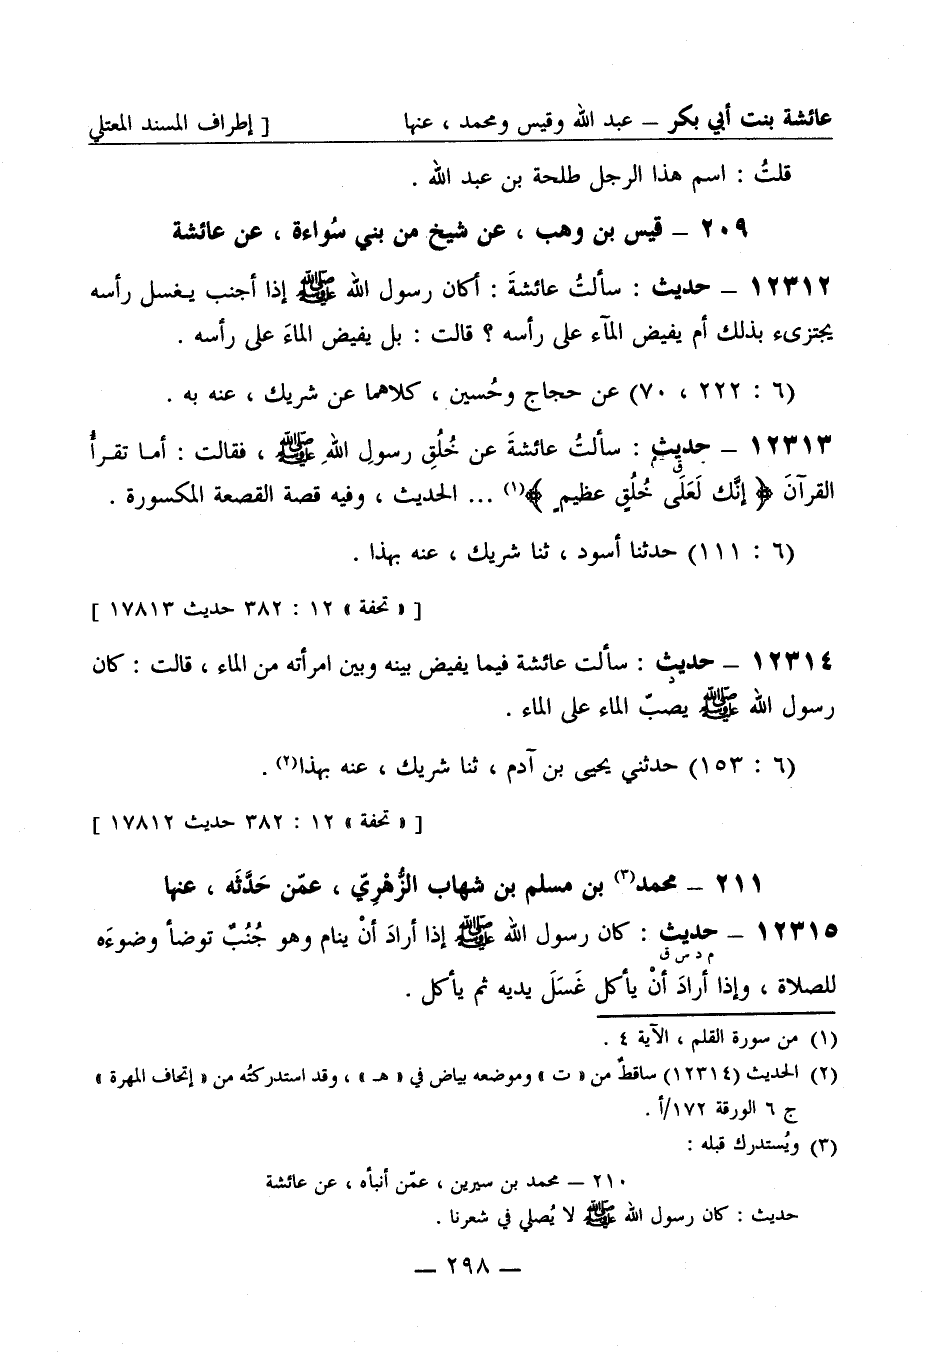 عائشة بنت أبي بكر – عبد الله وقيس ومحمد ، عنها [ إطراف المسند المعتلي
قلتُ : اسم هذا الرجل طلحة بن عبد الله .
٢٠٩ – قيس بن وهب ، عن شيخ من بني سُواءة ، عن عائشة
١٢٣١٢ – حديث : سألتُ عائشةَ : أكان رسول الله ﷺ إذا أجنب يغسل رأسه
يجتزىء بذلك أم يفيض المآء على رأسه ؟ قالت : بل يفيض الماءَ على رأسه .
(٦ : ٢٢٢ ، ٧٠) عن حجاج وحُسين ، كلاهما عن شريك ، عنه به .
١٢٣١٣ – حديث : سألتُ عائشةَ عن خُلُق رسولِ اللهِ ﷺ ، فقالت : أما تقرأُ
ق
القرآنَ ﴿ إنَّك لَعَلَى خُلُقٍ عظيمٍ ﴾(١) ... الحديث ، وفيه قصة القصعة المكسورة .
(٦ : ١١١) حدثنا أسود ، ثنا شريك ، عنه بهذا .
[ « تحفة » ١٢ : ٣٨٢ حديث ١٧٨١٣ ]
١٢٣١٤ – حديث : سألت عائشة فيما يفيض بينه وبين امرأته من الماء ، قالت : كان
د
رسول الله ﷺ يصبّ الماء على الماء .
(٦ : ١٥٣) حدثني يحيى بن آدم ، ثنا شريك ، عنه بهذا(٢) .
[ « تحفة » ١٢ : ٣٨٢ حديث ١٧٨١٢ ]
٢١١ – محمد(٣) بن مسلم بن شهاب الزُّهْرِيّ ، عمّن حَدَّثَه ، عنها
١٢٣١٥ – حديث : كان رسول الله ﷺ إذا أرادَ أنْ ينام وهو جُنُبٌ توضأ وضوءَه
م د س ق
للصلاة ، وإذا أرادَ أنْ يأكل غَسَلَ يديه ثم يأكل .
(١) من سورة القلم ، الآية ٤ .
(٢) الحديث (١٢٣١٤) ساقطٌ من « ت » وموضعه بياض في « هـ » ، وقد استدركتُه من « إتحاف المهرة »
ج ٦ الورقة ١٧٢/أ .
(٣) ويُستدرك قبله :
٢١٠ – محمد بن سيرين ، عمّن أنبأه ، عن عائشة
حديث : كان رسول الله ﷺ لا يُصلي في شعرنا .
– ٢٩٨ –